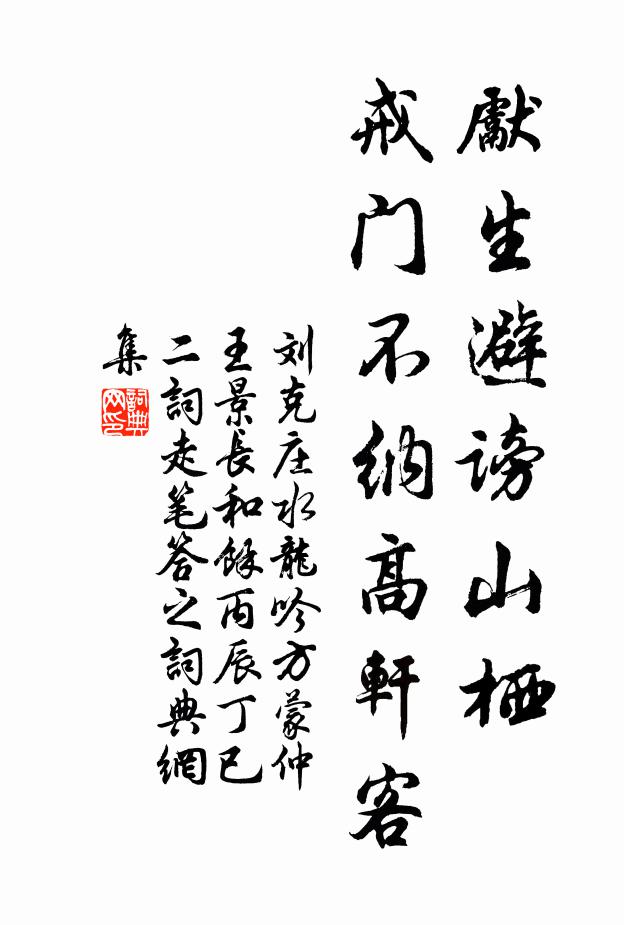 獻生避謗山栖
戒门不纳高軒客
刘克庄水龍吟方蒙仲
王景長和餘丙辰丁巳
二詞走笔答之詞典網
集
詞典
网印